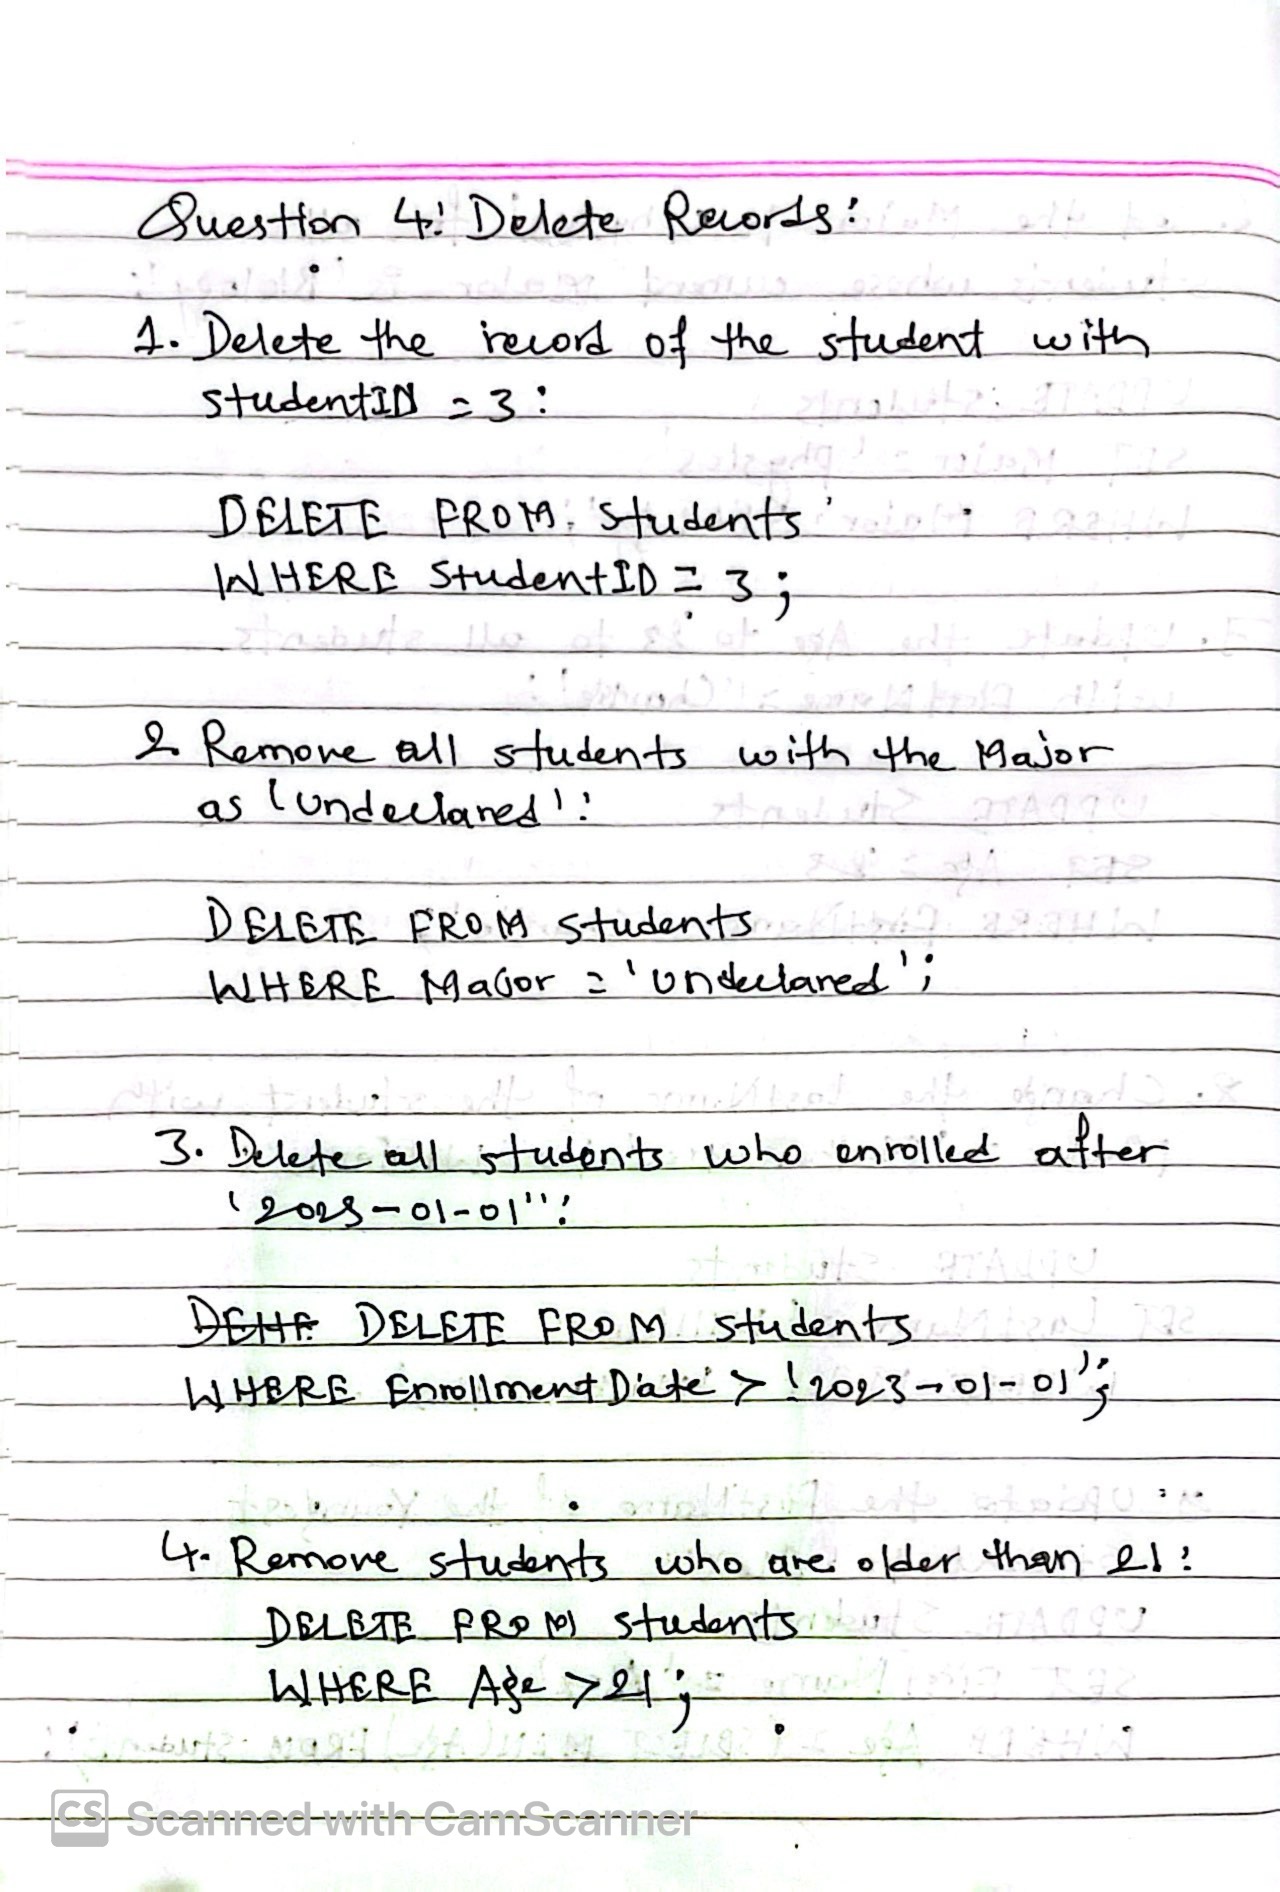 Question 4: Delete Records:
1. Delete the record of the student with
studentID = 3:
DELETE FROM Students
WHERE StudentID = 3;
2. Remove all students with the Major
as 'Undeclared':
DELETE FROM students
WHERE Major = 'Undeclared';
3. Delete all students who enrolled after
'2023-01-01":
DELETE FROM students
WHERE EnrollmentDate > '2023-01-01';
4. Remove students who are older than 21:
DELETE FROM students
WHERE Age >21;
CS Scanned with CamScanner